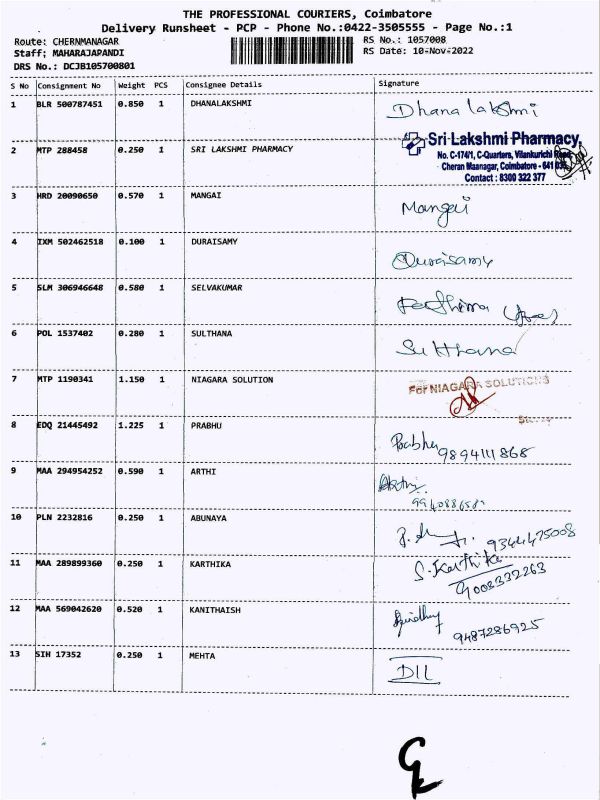 THE PROFESSIONAL COURIERS, Coimbatore
Delivery Runsheet - PCP - Phone No.:0422-3505555 - Page No.:1
Route: CHERNMANAGAR RS No.: 1057008
Staff: MAHARAJAPANDI RS Date: 10-Nov-2022
DRS No.: DCJB105700801
S No Consignment No Weight PCS Consignee Details Signature
1 BLR 500787451 0.850 1 DHANALAKSHMI Dhanalakshmi
2 MTP 288458 0.250 1 SRI LAKSHMI PHARMACY
Sri Lakshmi Pharmacy
No. C-174/1, C-Quarters, Vilankurichi Road,
Cheran Maanagar, Coimbatore - 641 035
Contact : 8300 322 377
3 HRD 20090650 0.570 1 MANGAI Mangai
4 IXM 502462518 0.100 1 DURAISAMY Duraisamy
5 SLM 306946648 0.580 1 SELVAKUMAR
6 POL 1537402 0.280 1 SULTHANA Sulthana
7 MTP 1190341 1.150 1 NIAGARA SOLUTION For NIAGARA SOLUTIONS
8 EDQ 21445492 1.225 1 PRABHU Prabhu 9894111868
9 MAA 294954252 0.590 1 ARTHI
10 PLN 2232816 0.250 1 ABUNAYA 9344475008
11 MAA 289899360 0.250 1 KARTHIKA S. Karthika
9003332263
12 MAA 569042620 0.520 1 KANITHAISH
9487286925
13 SIH 17352 0.250 1 MEHTA DIL